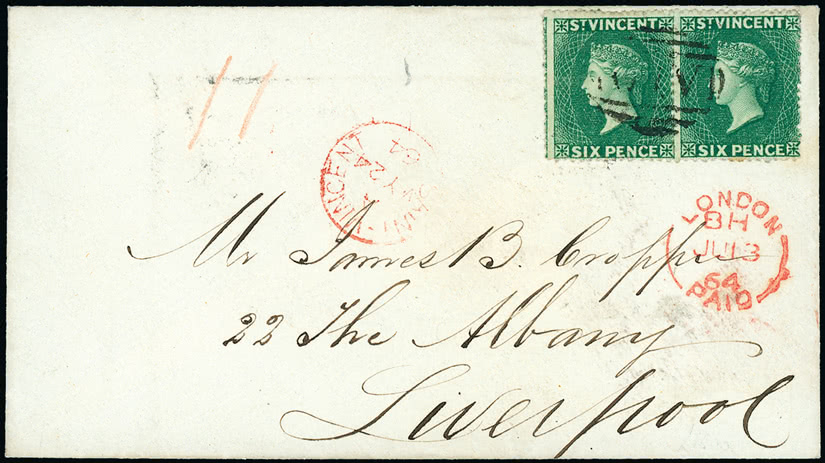 ST VINCENT
SIX PENCE
ST VINCENT
SIX PENCE
11
VINCENT
MY 24
64
LONDON
8H
JU 13
64
PAID
Mr James B. Cropper
22 The Albany
Liverpool